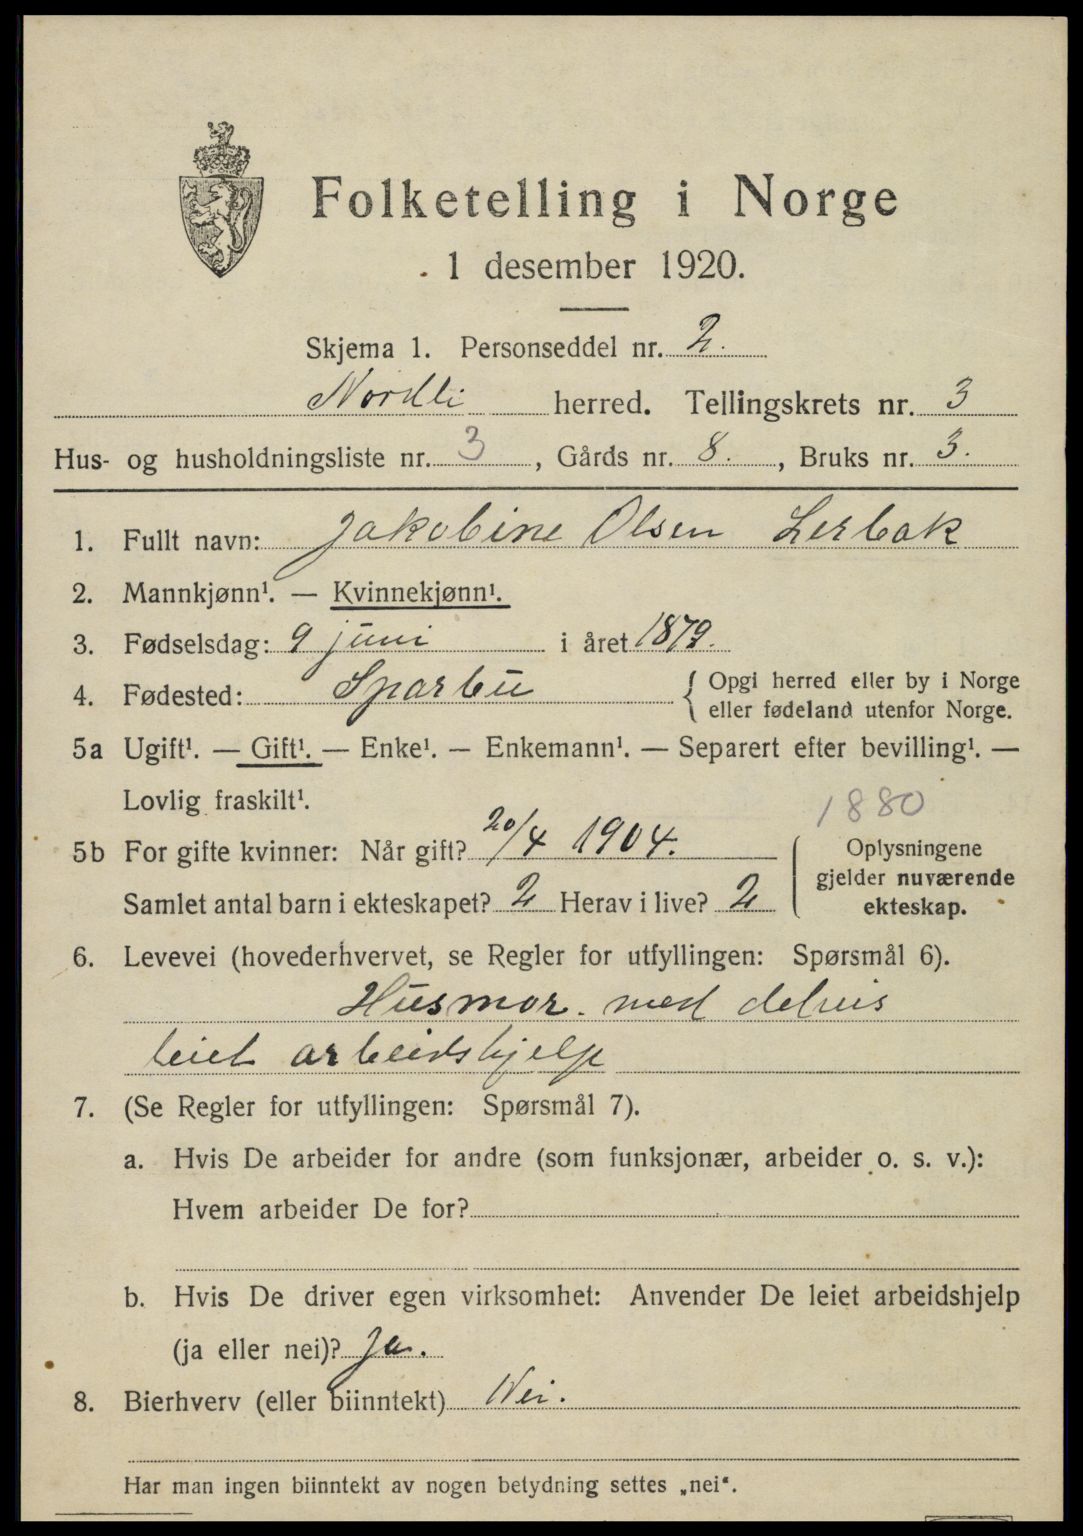 Folketelling i Norge
1 desember 1920.
Skjema 1. Personseddel nr. 2.
Nordli herred. Tellingskrets nr. 3
Hus- og husholdningsliste nr. 3, Gårds nr. 8., Bruks nr. 3.
1. Fullt navn: Jakobine Olsen Lerbak
2. Mannkjønn¹. — Kvinnekjønn¹.
3. Fødselsdag: 9 juni i året 1879.
4. Fødested: Sparbu { Opgi herred eller by i Norge
eller fødeland utenfor Norge.
5a Ugift¹. — Gift¹. — Enke¹. — Enkemann¹. — Separert efter bevilling¹. —
Lovlig fraskilt¹.
1880
5b For gifte kvinner: Når gift? 20/4 1904.
Samlet antal barn i ekteskapet? 2 Herav i live? 2
Oplysningene
gjelder nuværende
ekteskap.
6. Levevei (hovederhvervet, se Regler for utfyllingen: Spørsmål 6).
Husmor. med delvis
leiet arbeidshjelp
7. (Se Regler for utfyllingen: Spørsmål 7).
a. Hvis De arbeider for andre (som funksjonær, arbeider o. s. v.):
Hvem arbeider De for?
b. Hvis De driver egen virksomhet: Anvender De leiet arbeidshjelp
(ja eller nei)? Ja.
8. Bierhverv (eller biinntekt) Nei.
Har man ingen biinntekt av nogen betydning settes „nei“.